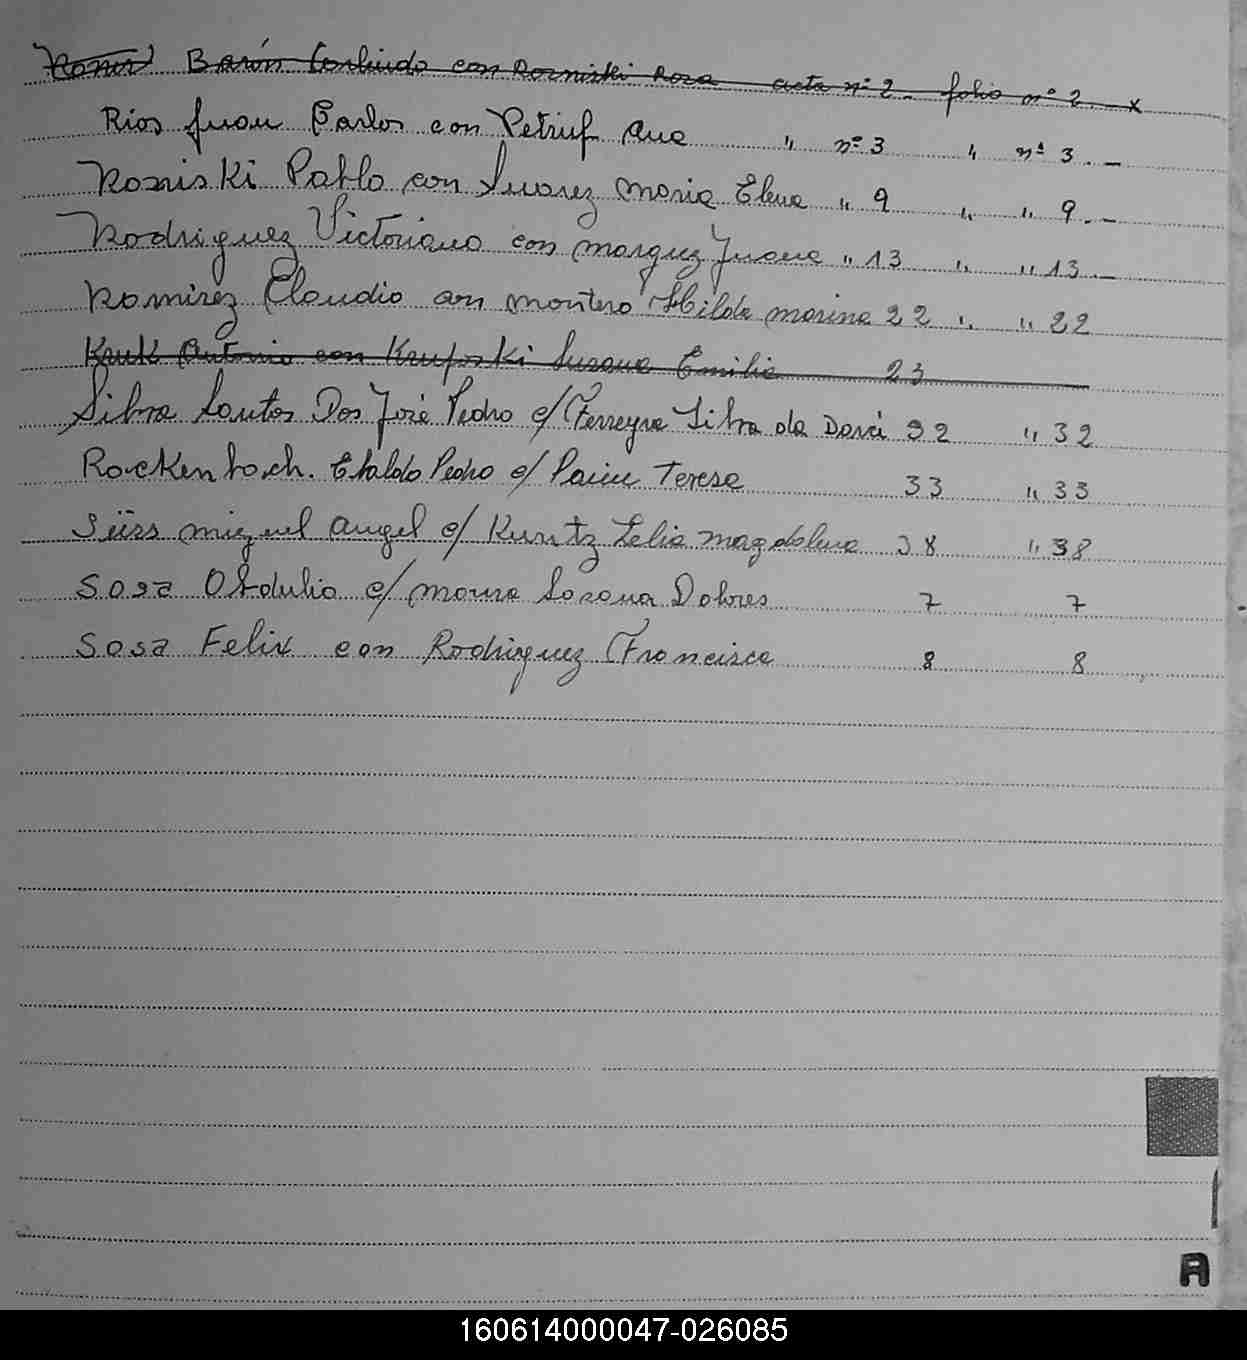 Barón con Rozniski Rosa acta nº 2. folio nº 2. x
Rios Juan Carlos con Petriuf Ana " nº 3 " nº 3.-
Rozniski Pablo con Suarez Maria Elena " 9 " " 9.-
Rodriguez Victoriano con Marquez Juana " 13 " " 13.-
Ramirez Claudio con Montero Hilda Marina 22 " " 22
Kruk Antonio con Krupski Susana Emilia 23
Silva Santos Dos José Pedro c/ Ferreyra Silva da Darci 32 " 32
Rockenbach. Ebaldo Pedro c/ Paiu Teresa 33 " 33
Süss Miguel Angel c/ Kuntz Lelia Magdalena 38 " 38
Sosa Obdulio c/ Moura Lorena Dolores 7 7
Sosa Felix con Rodriguez Francisca 8 8
A
160614000047-026085